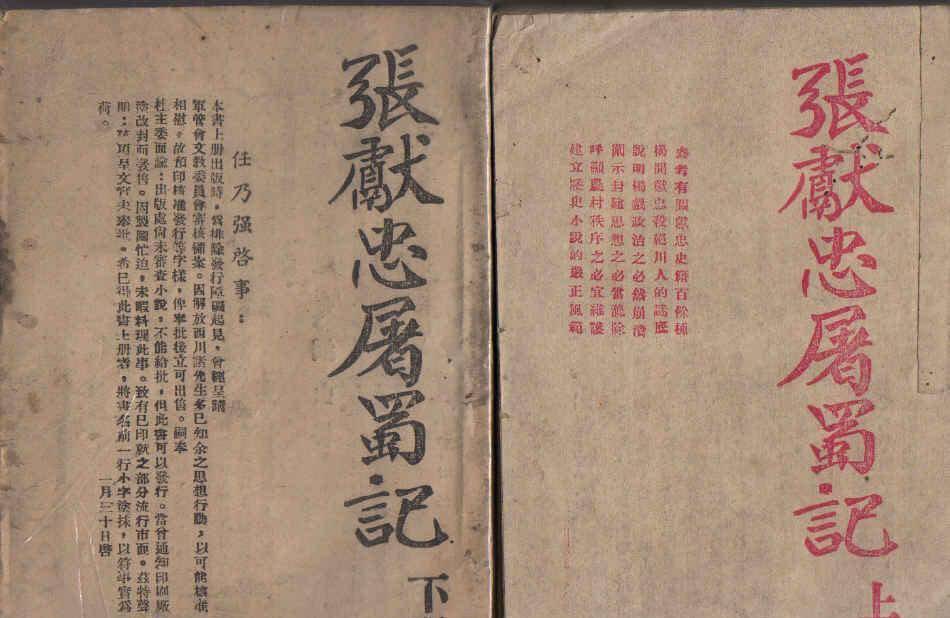 張獻忠屠蜀記
上
參考有關獻忠史籍百餘種
揭開獻忠殺絕川人的謎底
說明政治之必然崩潰
闡示封建思想之必當鏟除
呼籲農村秩序之必宜維護
建立歷史小說的嚴正風範
張獻忠屠蜀記
下
任乃强啓事：
本書上册出版時，爲排除發行障礙起見，曾經呈請
軍管會文教委員會審核備案。因解放西川諸先生多已知余之思想行動，以可能核准
相慰。故預印核准發行等字樣，俾奉批後立可出售。嗣奉
杜主委面諭：出版處尙未審查小說，不能給批，但此書可以發行。當曾通知印刷廠
塗改封面發售。因製圖忙迫，未暇料理此事。致有已印就之部分流行市面。茲特聲
明：呈文實未奉批。希已得此書上册者，將書名前一行小字塗抹，以符事實爲
荷。
一月三十日啓